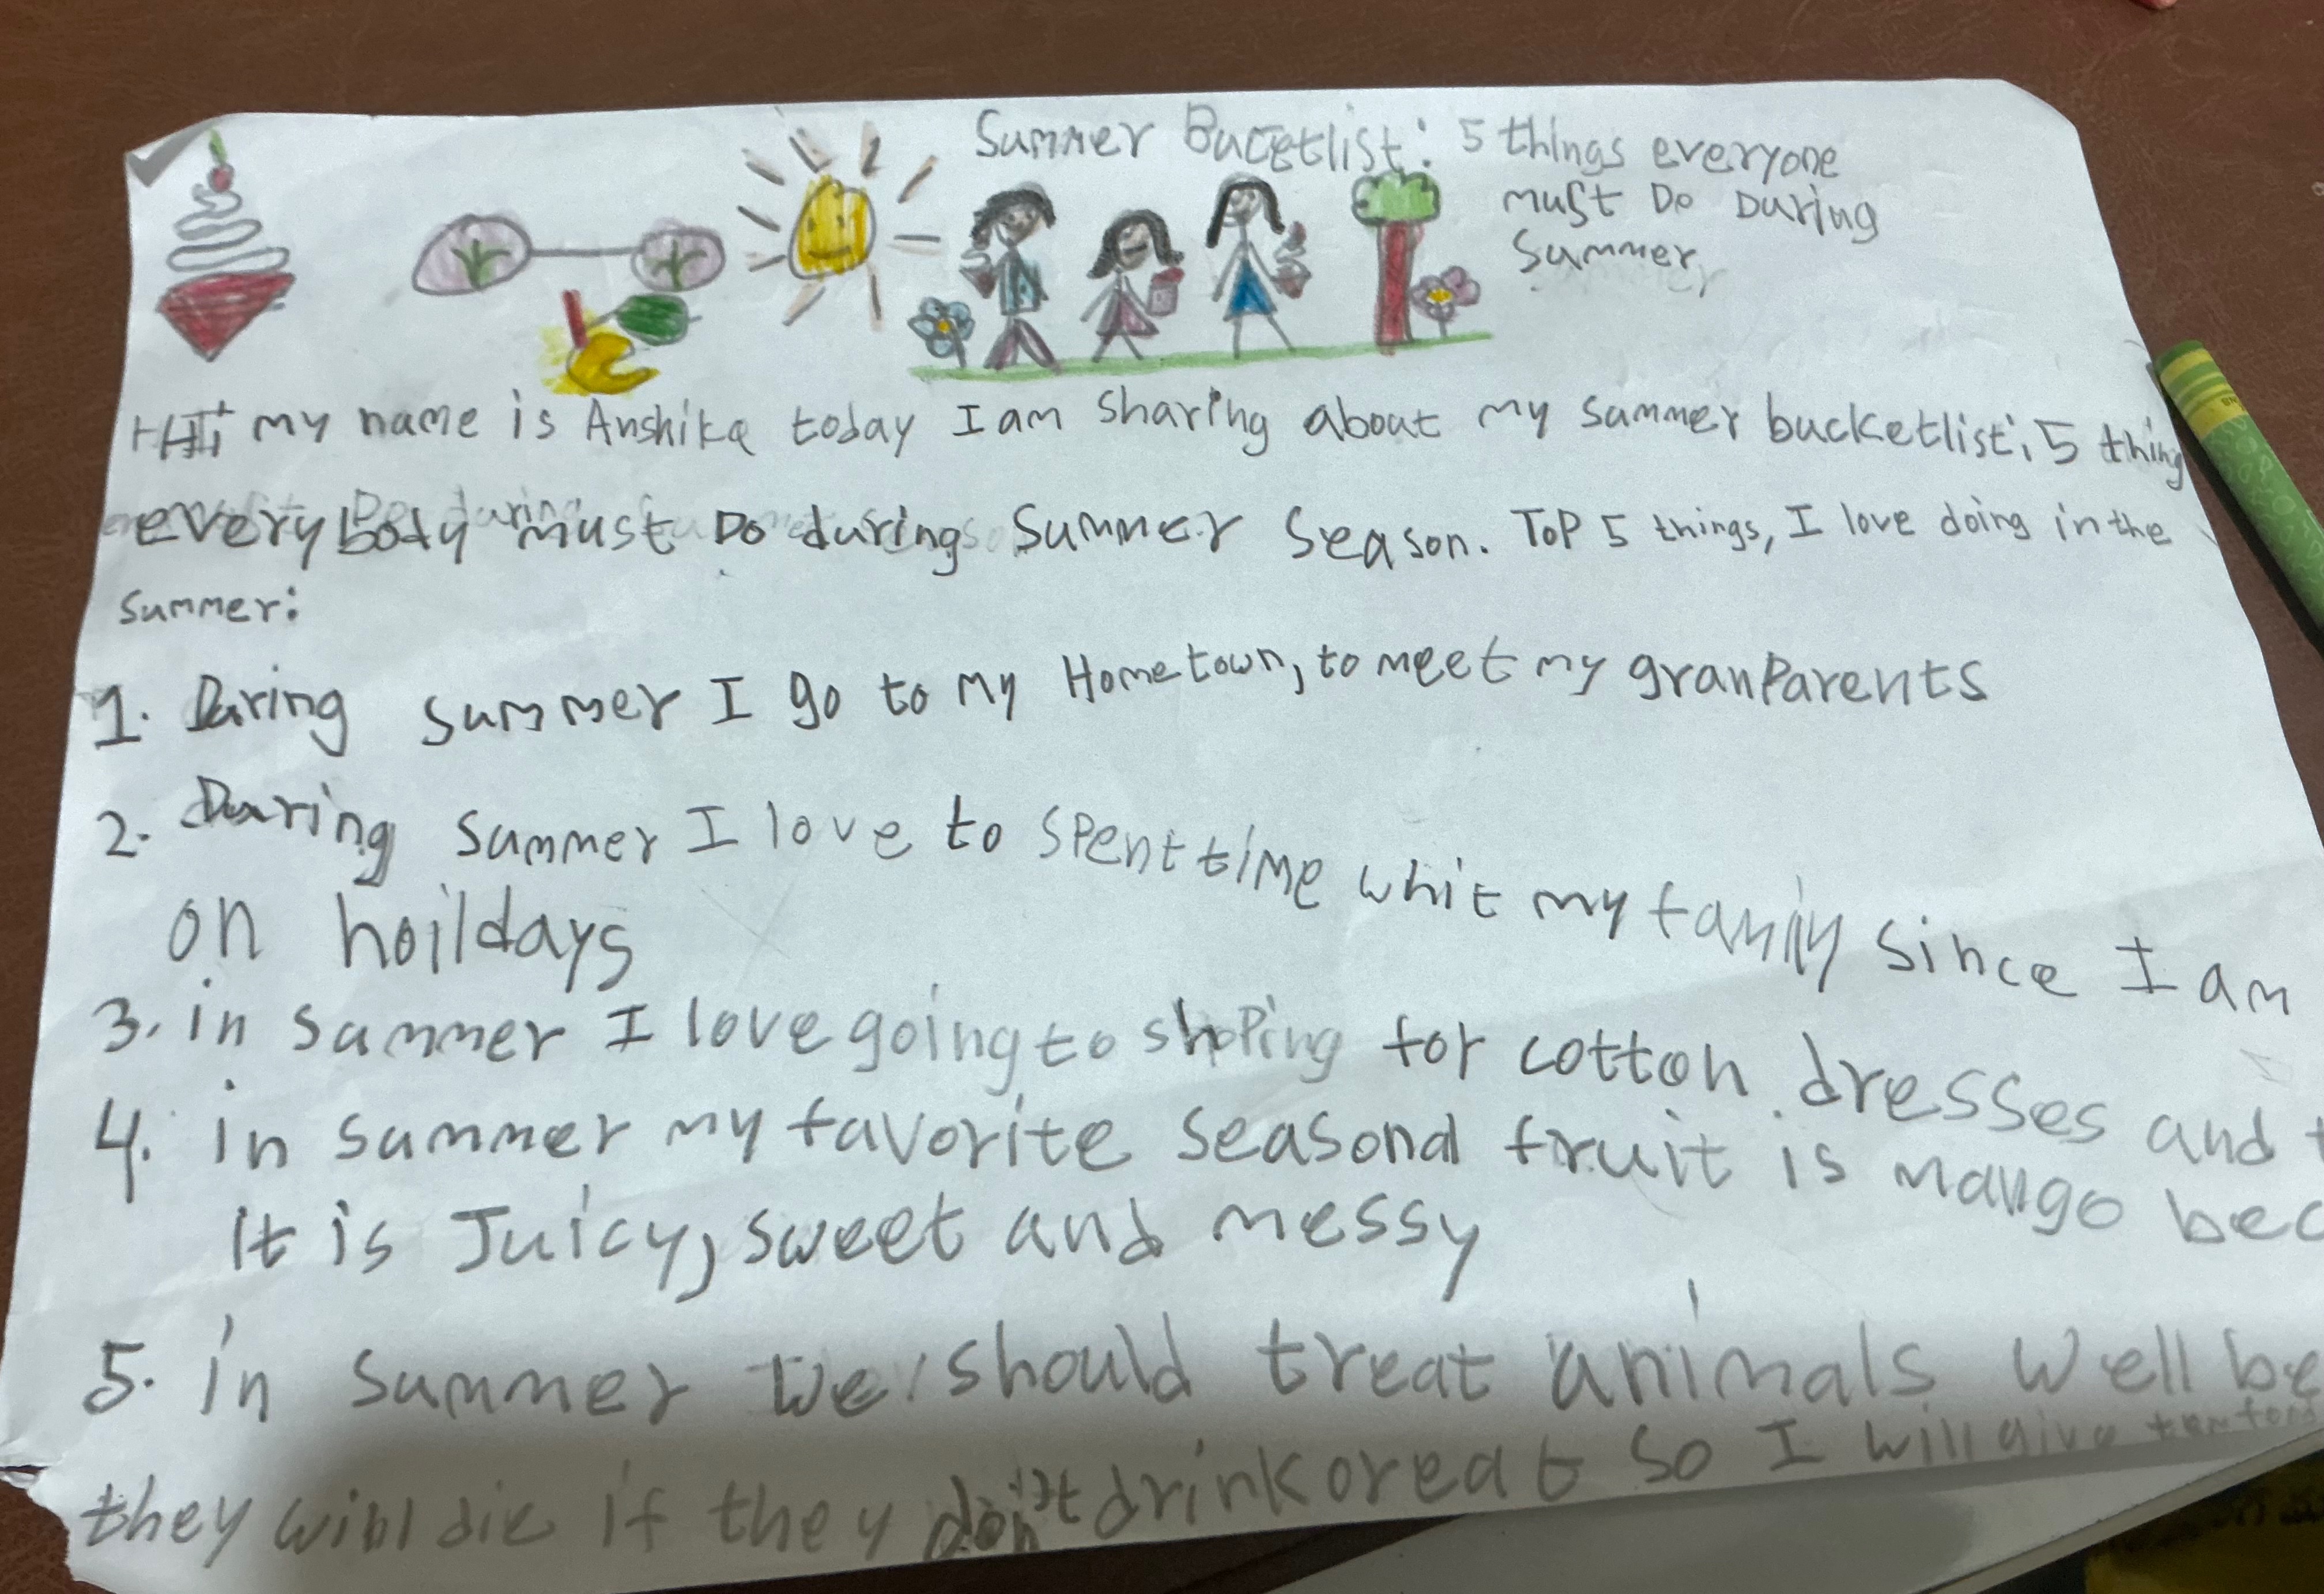 Summer Bucetlist: 5 things everyone
must Do During
Summer
Hi my name is Anshika today I am sharing about my summer bucketlist: 5 thing
everybody must Do during Summer Season. Top 5 things, I love doing in the
summer:
1. During summer I go to my Hometown, to meet my granParents
2. During summer I love to spent time whit my family since I am
on hoildays
3. in summer I love going to shoping for cotton dresses and
4. in summer my favorite seasonal fruit is mango bec
it is Juicy, sweet and messy
5. in summer we should treat animals well be
they will die if they don't drink or eat so I will give